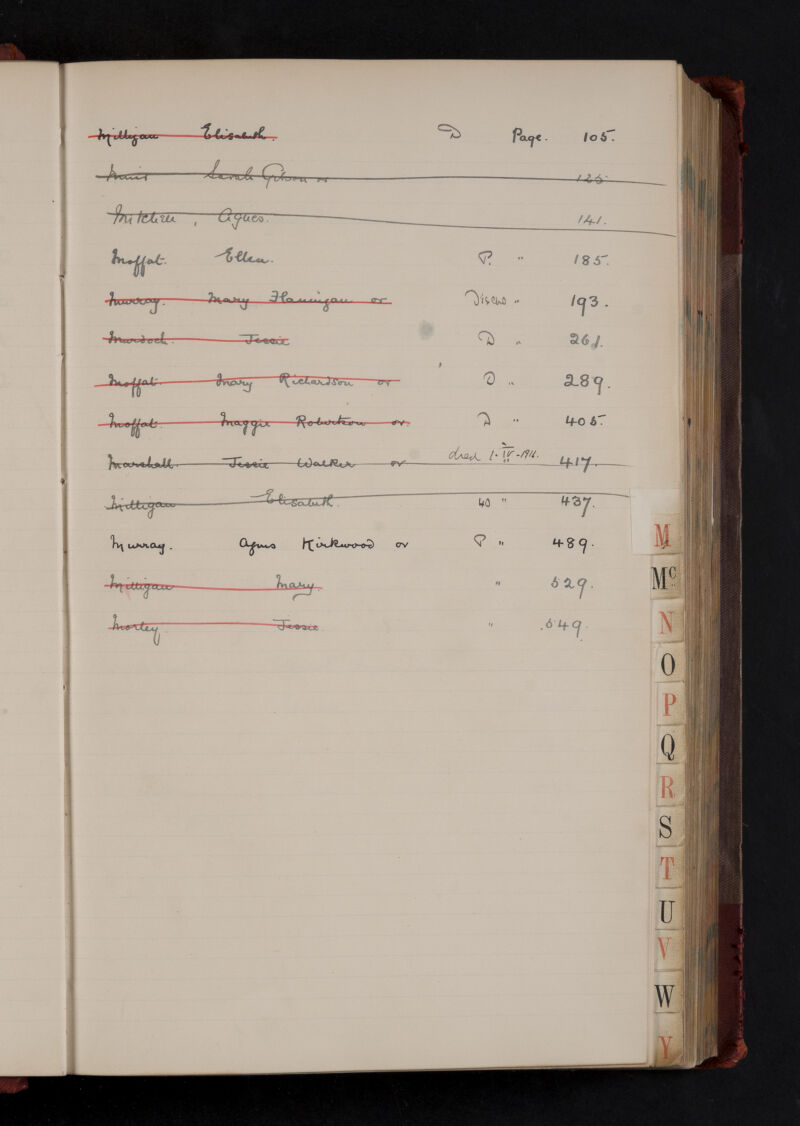 Milligan Elisabeth. D Page. 105.
Muir Sarah Gibson or 125
Mitchell, Agnes. 141.
Moffat. Ellen. P. " 185.
Murray. Mary Flannigan or Discho " 193.
Murdoch. Jessie D " 261.
Moffat. Mary Richardson or D " 289.
Moffat. Maggie Robertson or. D " 405.
Marshall. Jessie Walker or died 1-IV-1916. 417.
Milligan Elisabeth. 40 " 437.
Murray. Agnes Kirkwood or P " 489.
Milligan Mary. " 529.
Morley. Jessie. " 549.
M
Mc
N
O
P
Q
R
S
T
U
V
W
Y